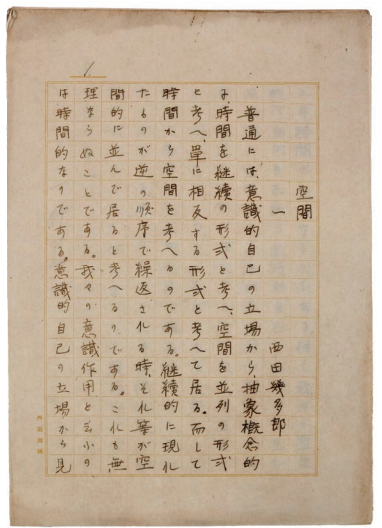 空間
西田幾多郎
一
普通には、意識的自己の立場から、抽象概念的
に、時間を継続の形式と考へ、空間を並列の形式
と考へ、単に相反する形式と考へて居る。而して
時間から空間を考へるのである。継続的に現れ
たものが逆の順序で繰返される時、それ等が空
間的に並んで居ると考へるのである。これも無
理ならぬことである。我々の意識作用と云ふの
は時間的なのである。意識的自己の立場から見